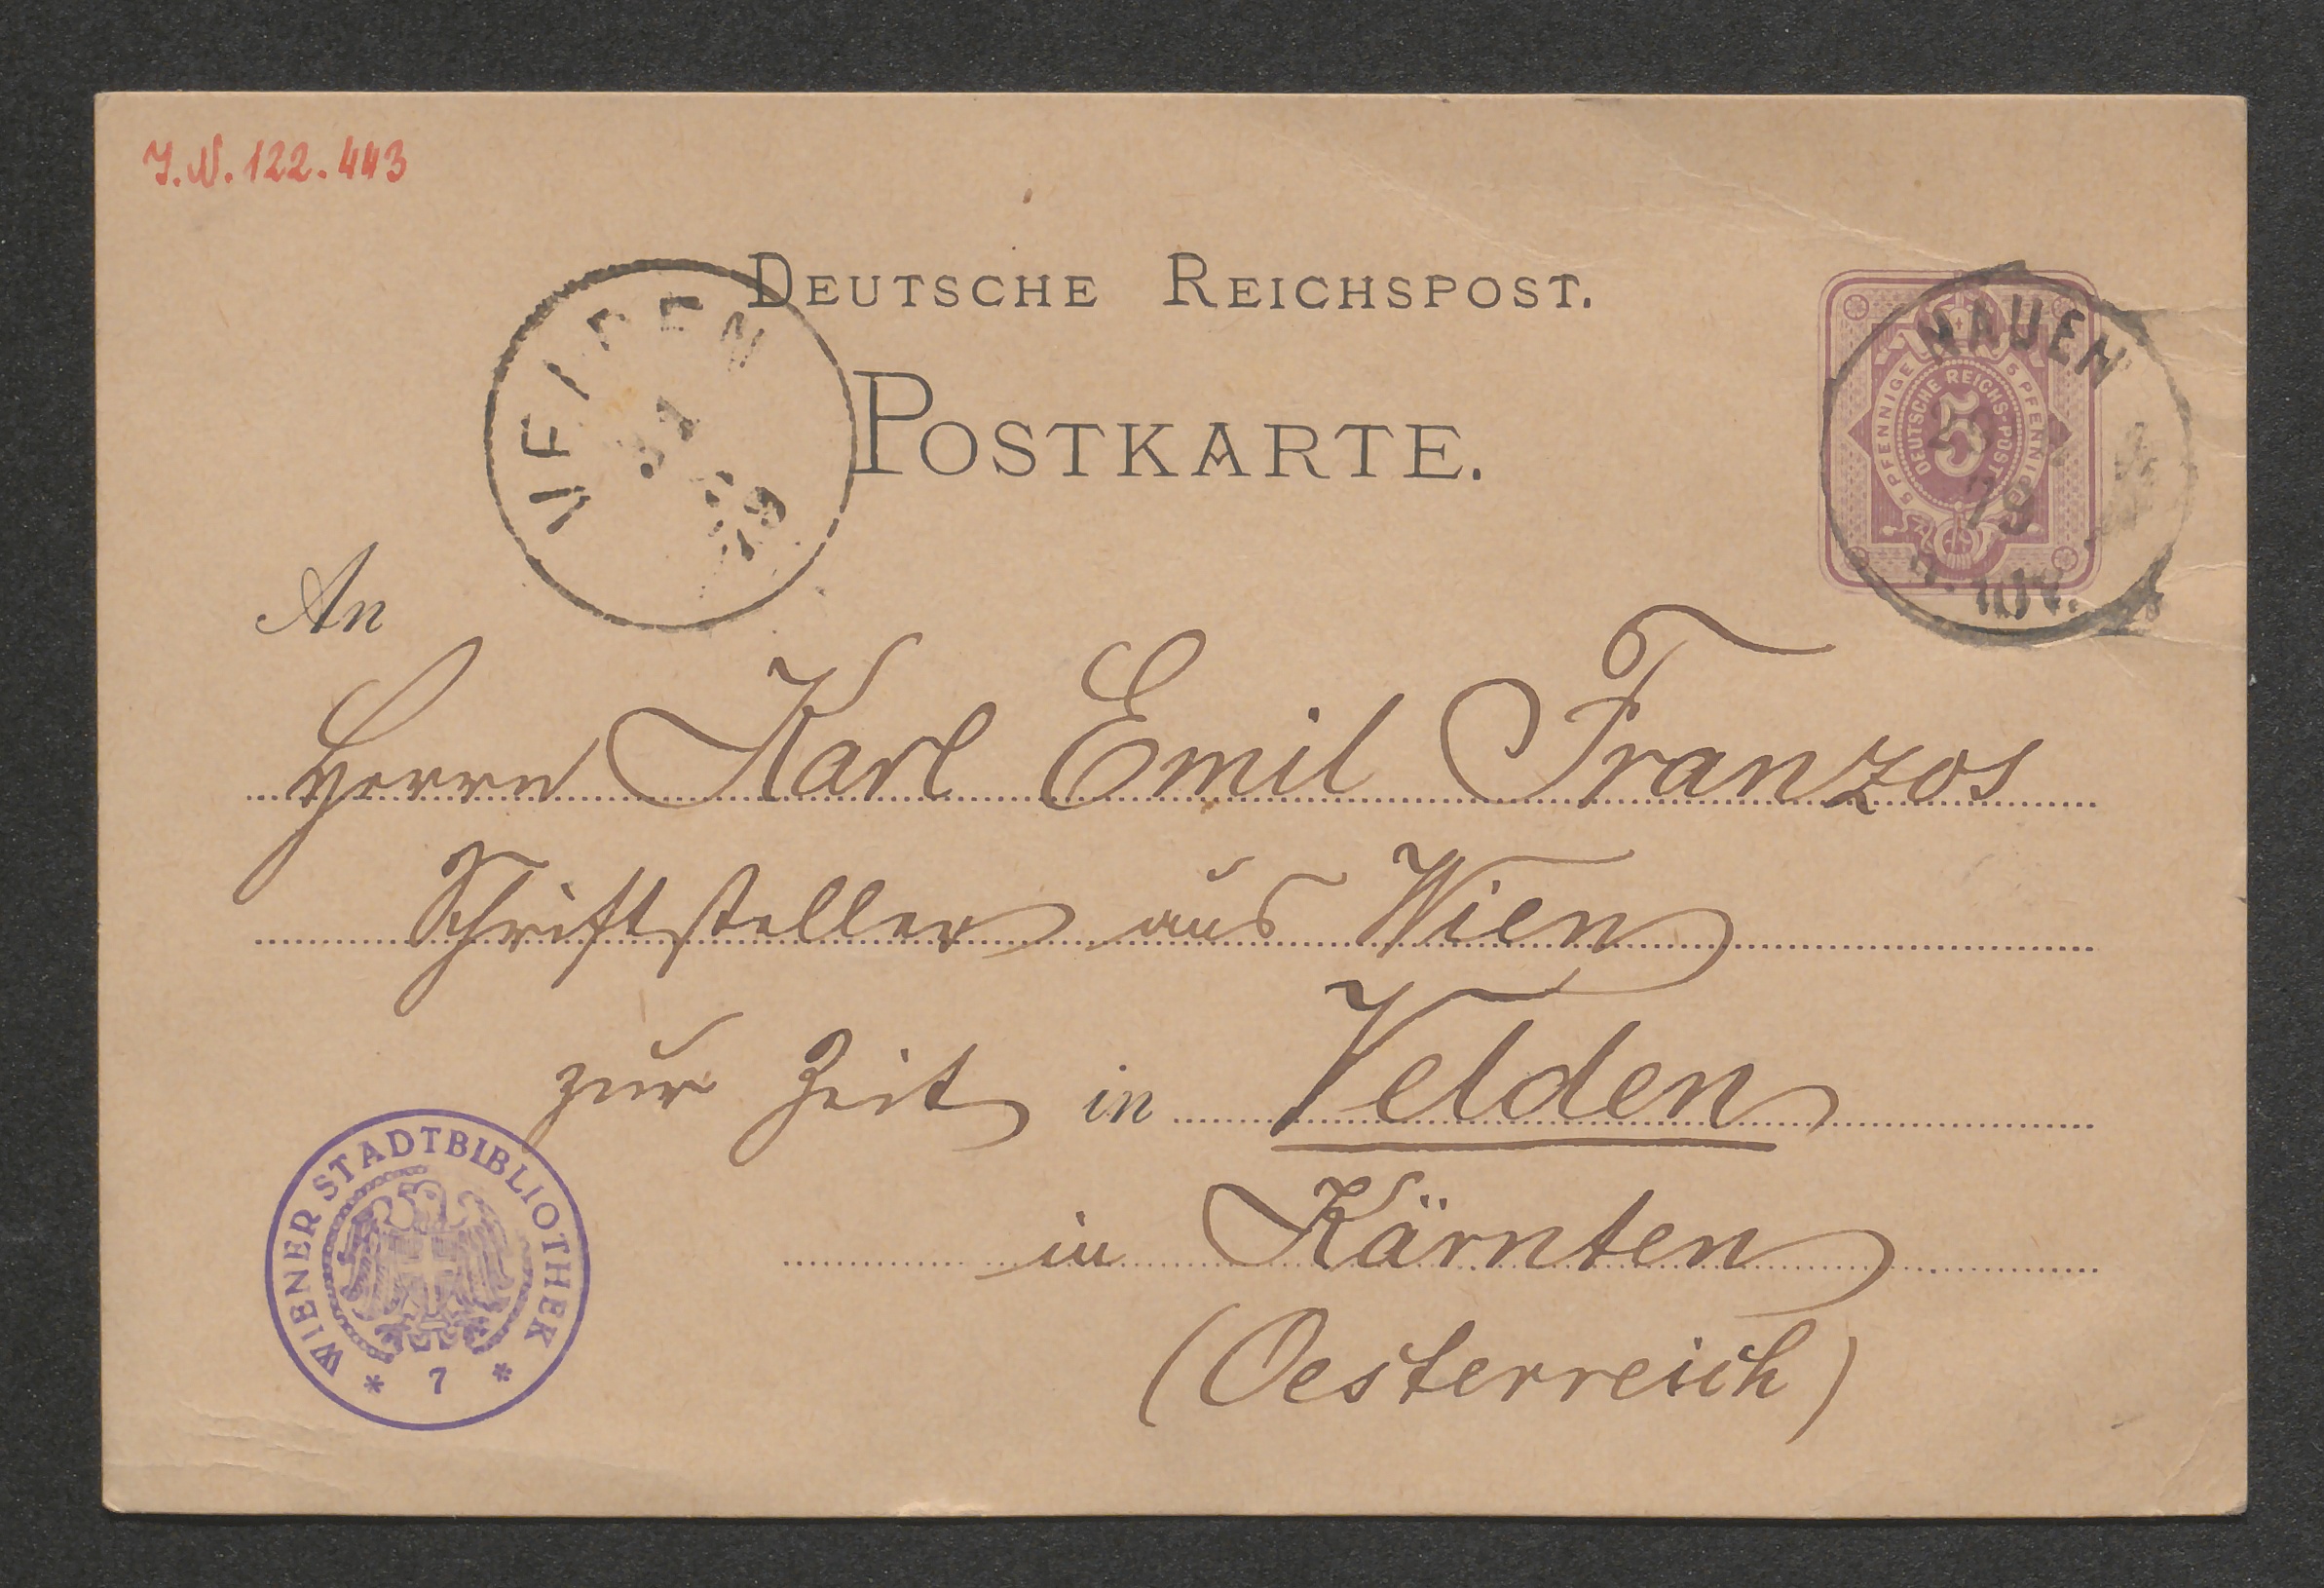 J.N. 122.443
DEUTSCHE REICHSPOST.
POSTKARTE.
VELDEN
79
NAUEN
79
5 PFENNIGE 5 PFENNIGE
DEUTSCHE REICHS-POST
5
An
Herrn Karl Emil Franzos
Schriftsteller aus Wien
zur Zeit in Velden
in Kärnten
(Oesterreich)
WIENER STADTBIBLIOTHEK
* 7 *